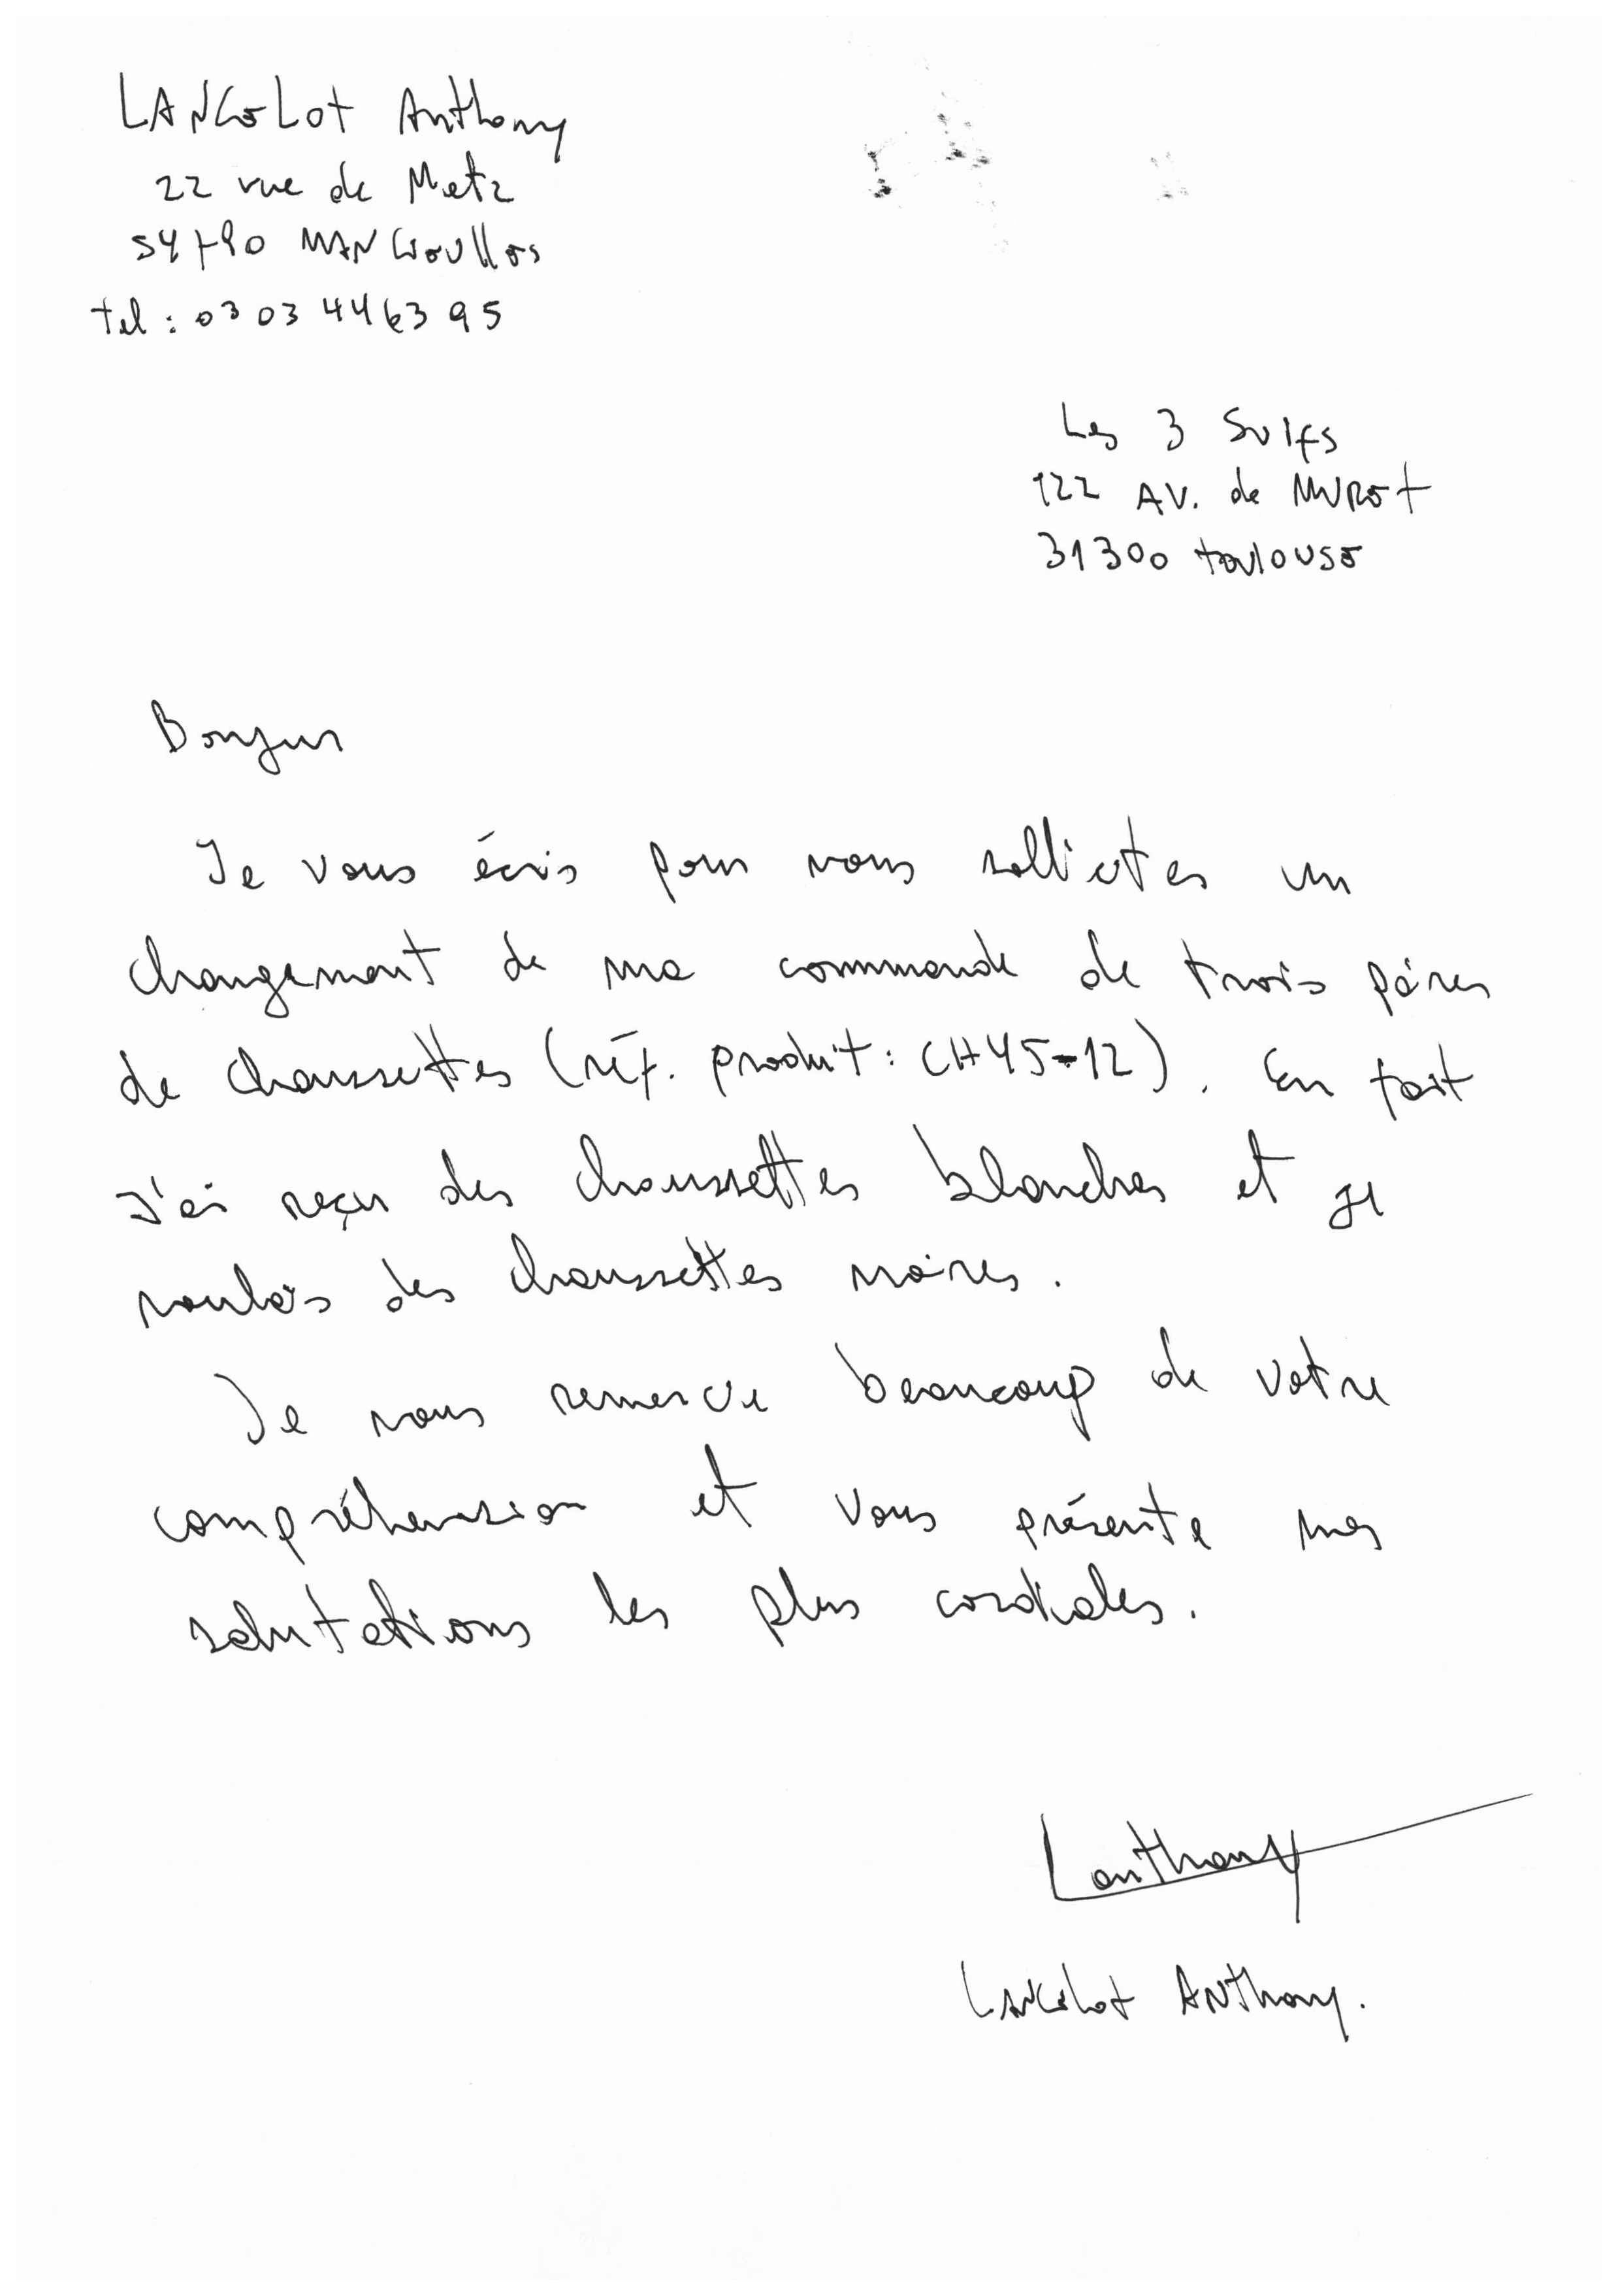 LANCELOT Anthony
22 rue de Metz
54790 MANCIEULLES
tel : 03 03 44 63 95
Les 3 Suifs
122 AV. de MURET
31300 toulouse
Bonjour
Je vous écris pour vous solliciter un
changement de ma commande de trois paires
de chaussettes (réf. produit : CH45-12). En fait
J'ai reçu des chaussettes blanches et je
voulais des chaussettes noires.
Je vous remercie beaucoup de votre
compréhension et vous présente mes
salutations les plus cordiales.
Lanthony
Lancelot Anthony.